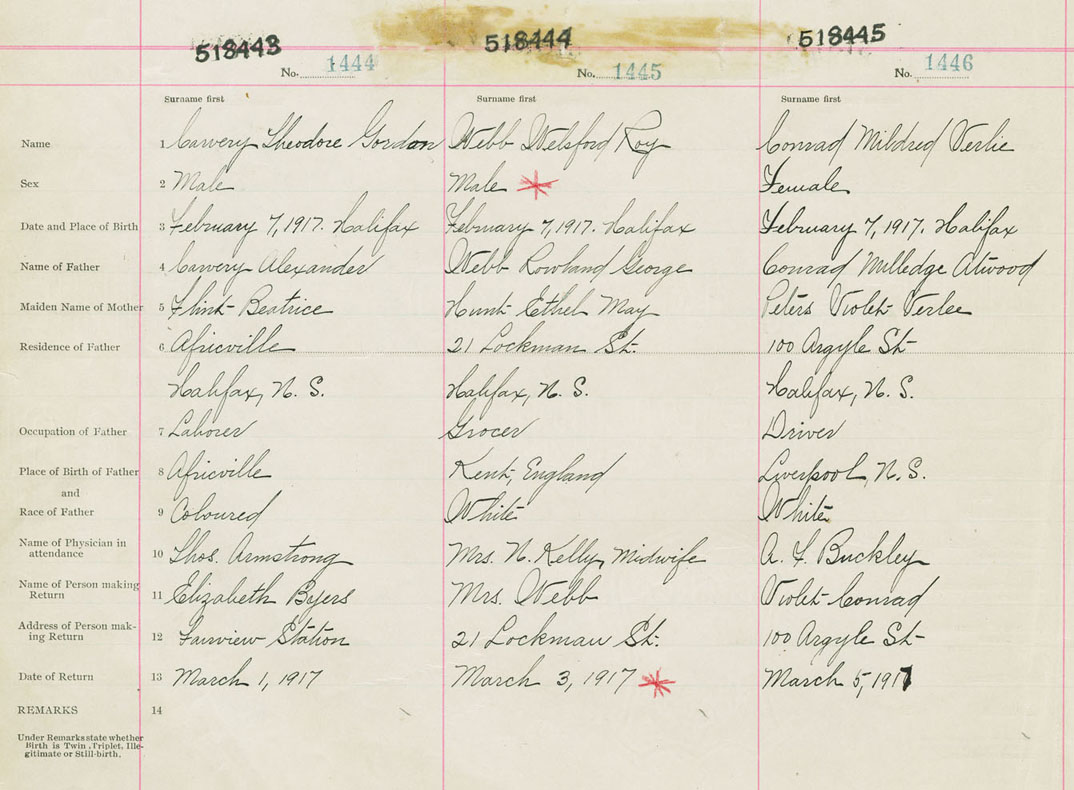 518443 518444 518445
No. 1444 No. 1445 No. 1446
Surname first Surname first Surname first
Name 1 Carvery Theodore Gordon Webb Welsford Roy Conrad Mildred Verlie
Sex 2 Male Male * Female
Date and Place of Birth 3 February 7, 1917. Halifax February 7, 1917. Halifax February 7, 1917. Halifax
Name of Father 4 Carvery Alexander Webb Rowland George Conrad Milledge Atwood
Maiden Name of Mother 5 Flint Beatrice Hunt Ethel May Peters Violet Verlee
Residence of Father 6 Africville 21 Lockman St. 100 Argyle St
Halifax, N. S. Halifax, N. S. Halifax, N. S.
Occupation of Father 7 Laborer Grocer Driver
Place of Birth of Father 8 Africville Kent, England Liverpool, N. S.
and
Race of Father 9 Coloured White White
Name of Physician in
attendance 10 Thos. Armstrong Mrs. N. Kelly, Midwife A. F. Buckley
Name of Person making
Return 11 Elizabeth Byers Mrs. Webb Violet Conrad
Address of Person mak-
ing Return 12 Fairview Station 21 Lockman St. 100 Argyle St
Date of Return 13 March 1, 1917 March 3, 1917 * March 5, 1917
REMARKS 14
Under Remarks state whether
Birth is Twin, Triplet, Ille-
gitimate or Still-birth.